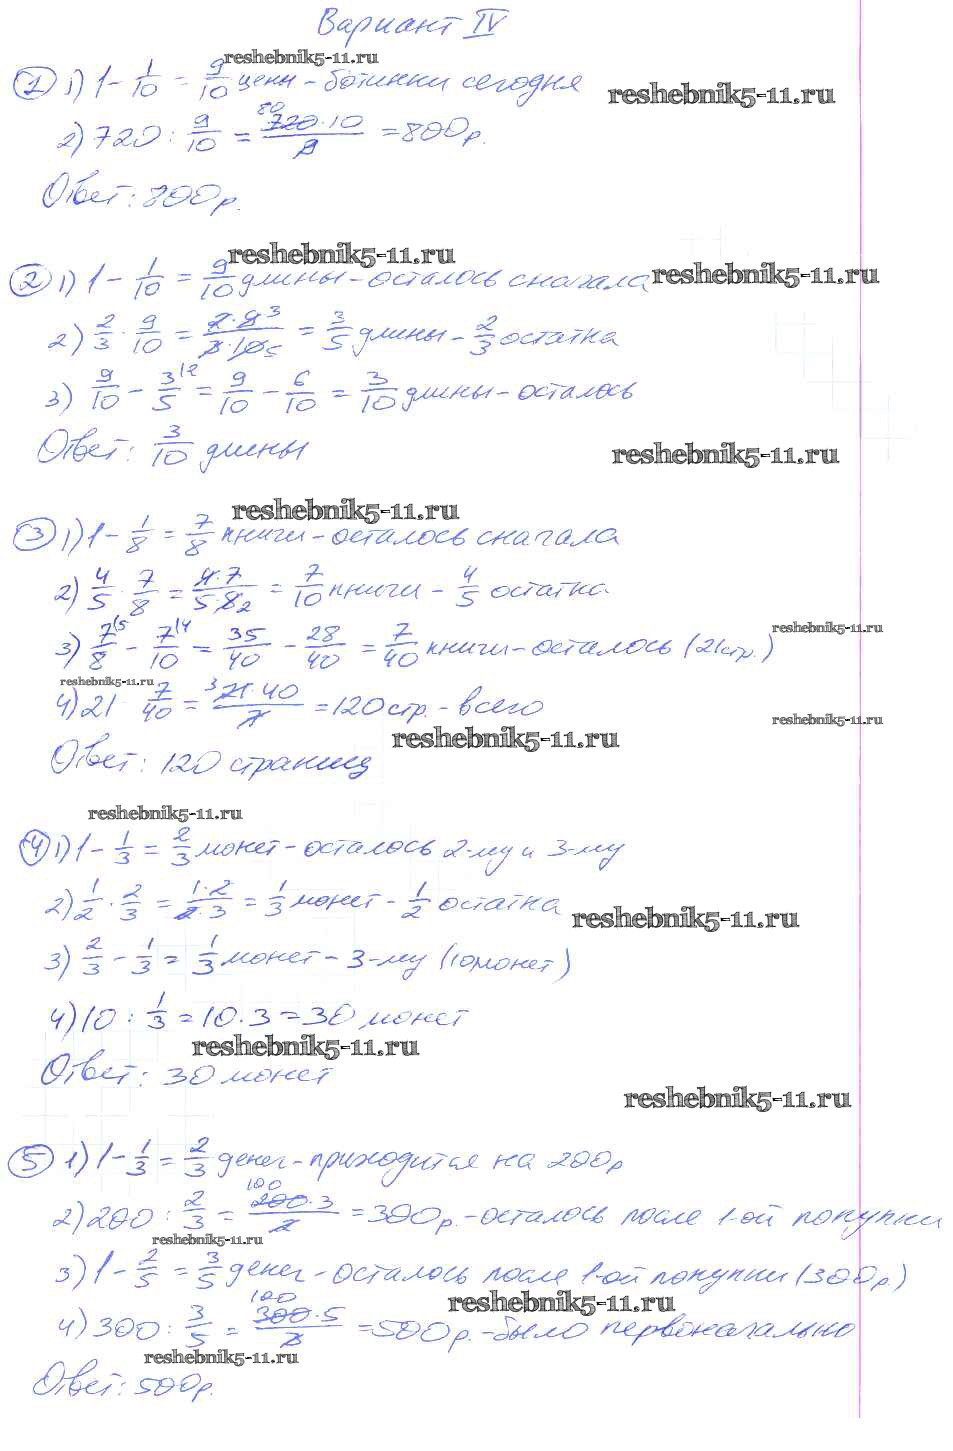 Вариант IV
reshebnik5-11.ru
1 1) 1 - 1/10 = 9/10 цены - ботинки сегодня
reshebnik5-11.ru
2) 720 : 9/10 = 720·10/9 = 800р.
80
Ответ: 800р.
reshebnik5-11.ru
2 1) 1 - 1/10 = 9/10 длины - осталось сначала
reshebnik5-11.ru
2) 2/3 · 9/10 = 2·9 3/3·10 5 = 3/5 длины - 2/3 остатка
3) 9/10 - 3/5 |2 = 9/10 - 6/10 = 3/10 длины - осталось
Ответ: 3/10 длины
reshebnik5-11.ru
reshebnik5-11.ru
3 1) 1 - 1/8 = 7/8 книги - осталось сначала
2) 4/5 · 7/8 = 4·7/5·8 2 = 7/10 книги - 4/5 остатка
reshebnik5-11.ru
3) 7/8 |5 - 7/10 |4 = 35/40 - 28/40 = 7/40 книги - осталось (21стр.)
reshebnik5-11.ru
4) 21 7/40 = 3 21·40/7 = 120стр. - всего
reshebnik5-11.ru
reshebnik5-11.ru
Ответ: 120 страниц
reshebnik5-11.ru
4 1) 1 - 1/3 = 2/3 монет - осталось 2-му и 3-му
2) 1/2 · 2/3 = 1·2/2·3 = 1/3 монет - 1/2 остатка
reshebnik5-11.ru
3) 2/3 - 1/3 = 1/3 монет - 3-му (10монет)
4) 10 : 1/3 = 10·3 = 30 монет
reshebnik5-11.ru
Ответ: 30 монет
reshebnik5-11.ru
5 1) 1 - 1/3 = 2/3 денег - приходится на 200р
2) 200 : 2/3 = 200·3/2 = 300р. - осталось после 1-ой покупки
100
reshebnik5-11.ru
3) 1 - 2/5 = 3/5 денег - осталось после 1-ой покупки (300р)
reshebnik5-11.ru
4) 300 : 3/5 = 300·5/3 = 500р. - было первоначально
100
reshebnik5-11.ru
Ответ: 500р.